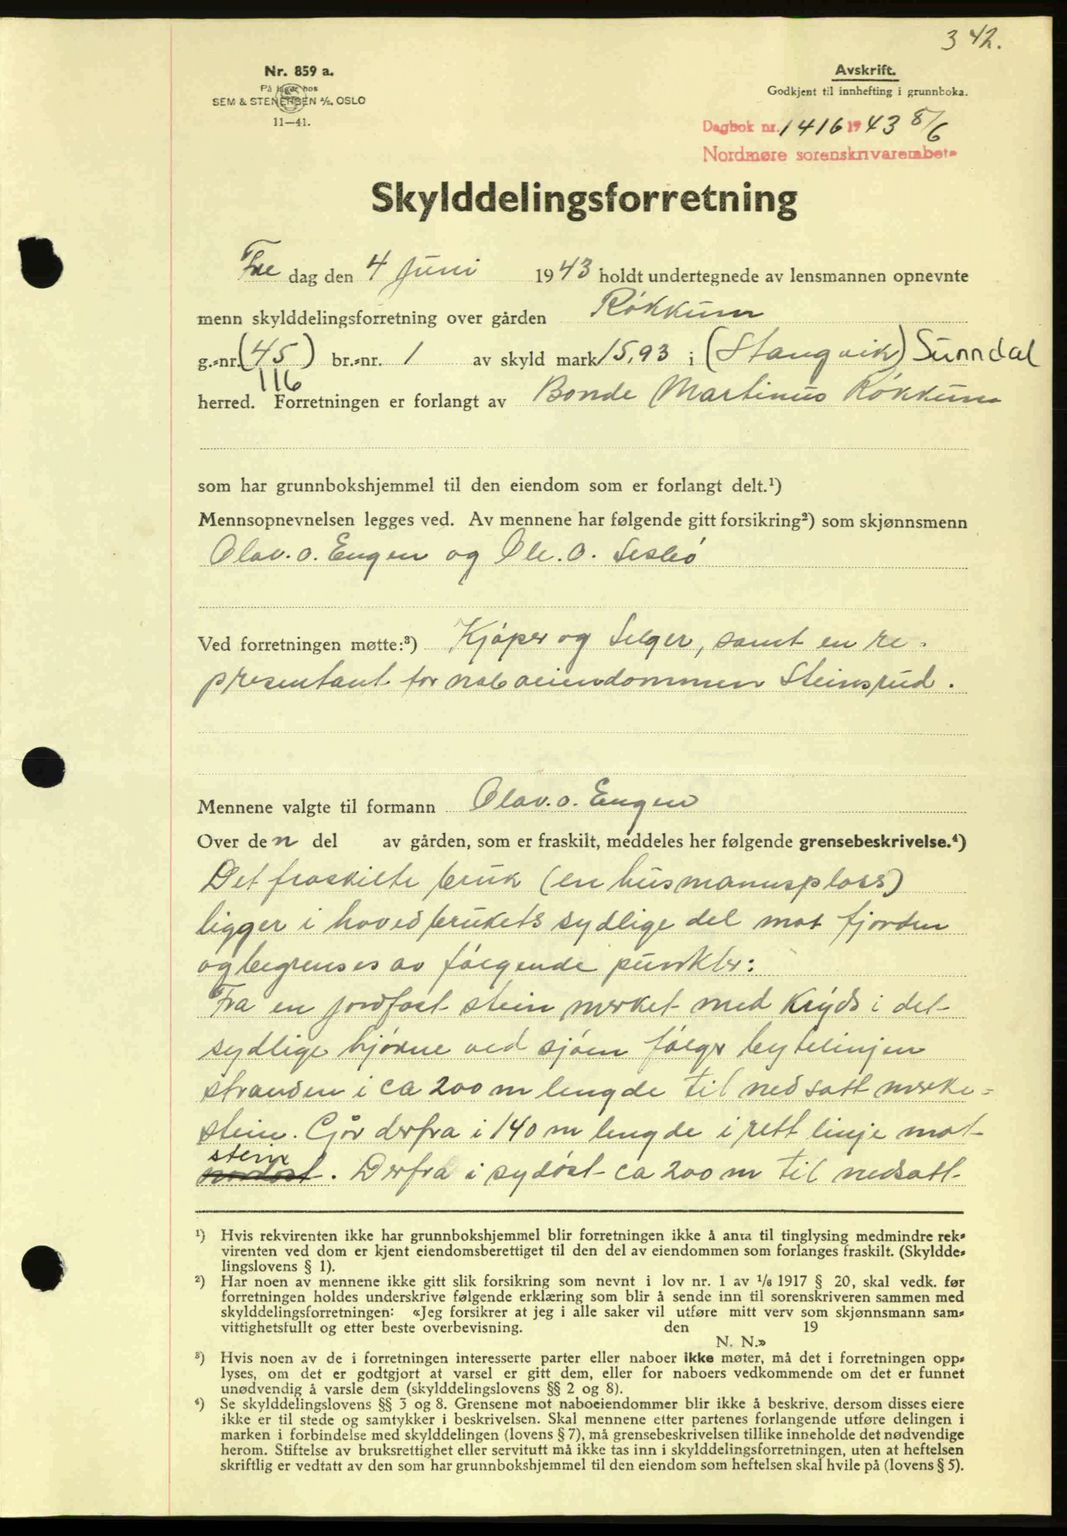 342.
Nr. 859 a.
På lager hos
SEM & STENERSEN A/S, OSLO
11—41.
Avskrift.
Godkjent til innhefting i grunnboka.
Dagbok nr. 1416 1943 8/6
Nordmøre sorenskriverembete
Skylddelingsforretning
Fre dag den 4 Juni 1943 holdt undertegnede av lensmannen opnevnte
menn skylddelingsforretning over gården Røkkum
g.-nr. (45) br.-nr. 1 av skyld mark 15,93 i (Stangvik) Sunndal
116
herred. Forretningen er forlangt av Bonde Martinus Røkkum
som har grunnbokshjemmel til den eiendom som er forlangt delt.¹)
Mennsopnevnelsen legges ved. Av mennene har følgende gitt forsikring²) som skjønnsmenn
Olav. O. Engen og Ole. O.
Ved forretningen møtte:³) Kjøper og Selger, samt en re-
presentant for naboeiendommen Steinsrud.
Mennene valgte til formann Olav. O. Engen
Over den del av gården, som er fraskilt, meddeles her følgende grensebeskrivelse.⁴)
Det fraskilte bruk (en husmannsplass)
ligger i hovedbrukets sydlige del mot fjorden
og begrenses av følgende punkter:
Fra en jordfast stein merket med Kryds i det
sydlige hjørne ved sjøen følger bytelinjen
stranden i ca 200 m lengde til nedsatt merke-
stein. Går derfra i 140 m lengde i rett linje mot
stein
nordost. Derfra i sydøst ca 200 m til nedsatt
¹) Hvis rekvirenten ikke har grunnbokshjemmel blir forretningen ikke å anta til tinglysing medmindre rek-
virenten ved dom er kjent eiendomsberettiget til den del av eiendommen som forlanges fraskilt. (Skyldde-
lingslovens § 1).
²) Har noen av mennene ikke gitt slik forsikring som nevnt i lov nr. 1 av 1/6 1917 § 20, skal vedk. før
forretningen holdes underskrive følgende erklæring som blir å sende inn til sorenskriveren sammen med
skylddelingsforretningen: «Jeg forsikrer at jeg i alle saker vil utføre mitt verv som skjønnsmann sam-
vittighetsfullt og etter beste overbevisning. den 19
N. N.»
³) Hvis noen av de i forretningen interesserte parter eller naboer ikke møter, må det i forretningen opp-
lyses, om det er godtgjort at varsel er gitt dem, eller for naboers vedkommende om det er funnet
unødvendig å varsle dem (skylddelingslovens §§ 2 og 8).
⁴) Se skylddelingslovens §§ 3 og 8. Grensene mot naboeiendommer blir ikke å beskrive, dersom disses eiere
ikke er til stede og samtykker i beskrivelsen. Skal mennene etter partenes forlangende utføre delingen i
marken i forbindelse med skylddelingen (lovens § 7), må grensebeskrivelsen tillike inneholde det nødvendige
herom. Stiftelse av bruksrettighet eller servitutt må ikke tas inn i skylddelingsforretningen, uten at heftelsen
skriftlig er vedtatt av den som har grunnbokshjemmel til den eiendom som heftelsen skal hvile på (lovens § 5).